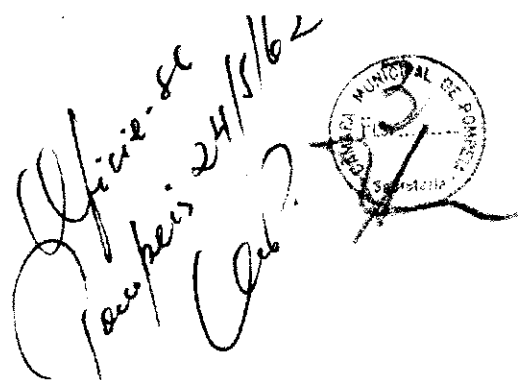 Oficie-se
Pompeia 24/5/62
CÂMARA MUNICIPAL DE POMPEIA
3
Fls.
Secretaria